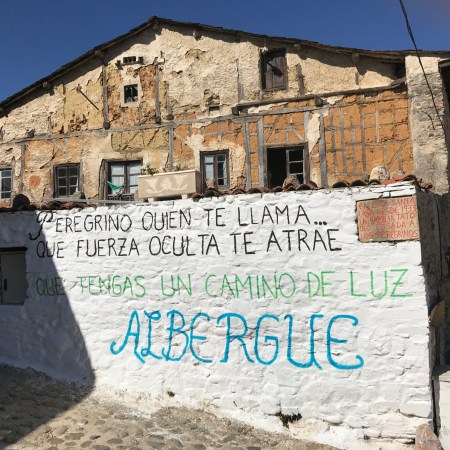 PEREGRINO QUIEN TE LLAMA...
QUE FUERZA OCULTA TE ATRAE
QUE TENGAS UN CAMINO DE LUZ
ALBERGUE